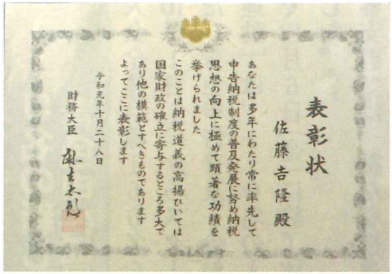 表彰状
佐藤吉隆 殿
あなたは多年にわたり常に率先して
申告納税制度の普及発展に努め納税
思想の向上に極めて顕著な功績を
挙げられました
このことは納税道義の高揚ひいては
国家財政の確立に寄与するところ多大で
あり他の模範とすべきものであります
よってここに表彰します
令和元年十月二十八日
財務大臣